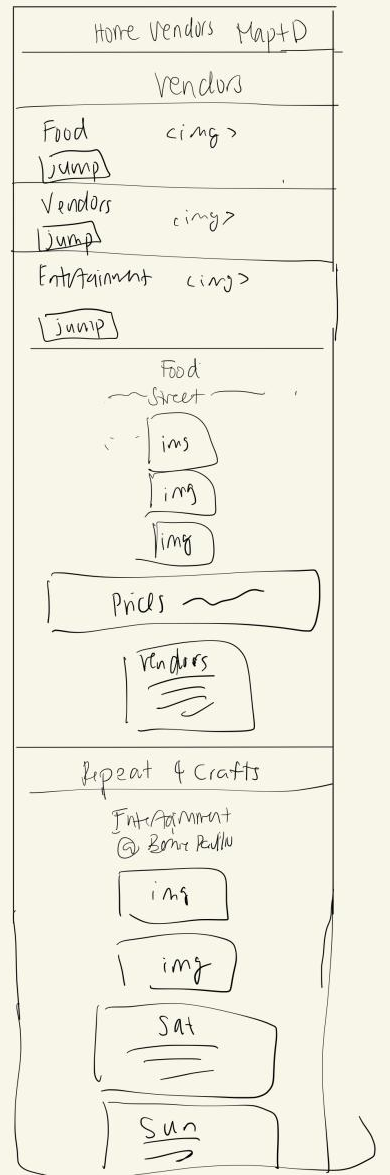 Home Vendors Map+D
Vendors
Food <img>
jump
Vendors <img>
jump
Entertainment <img>
jump
Food
Street
img
img
img
Prices
Vendors
Repeat 4 Crafts
Entertainment
@
img
img
Sat
Sun